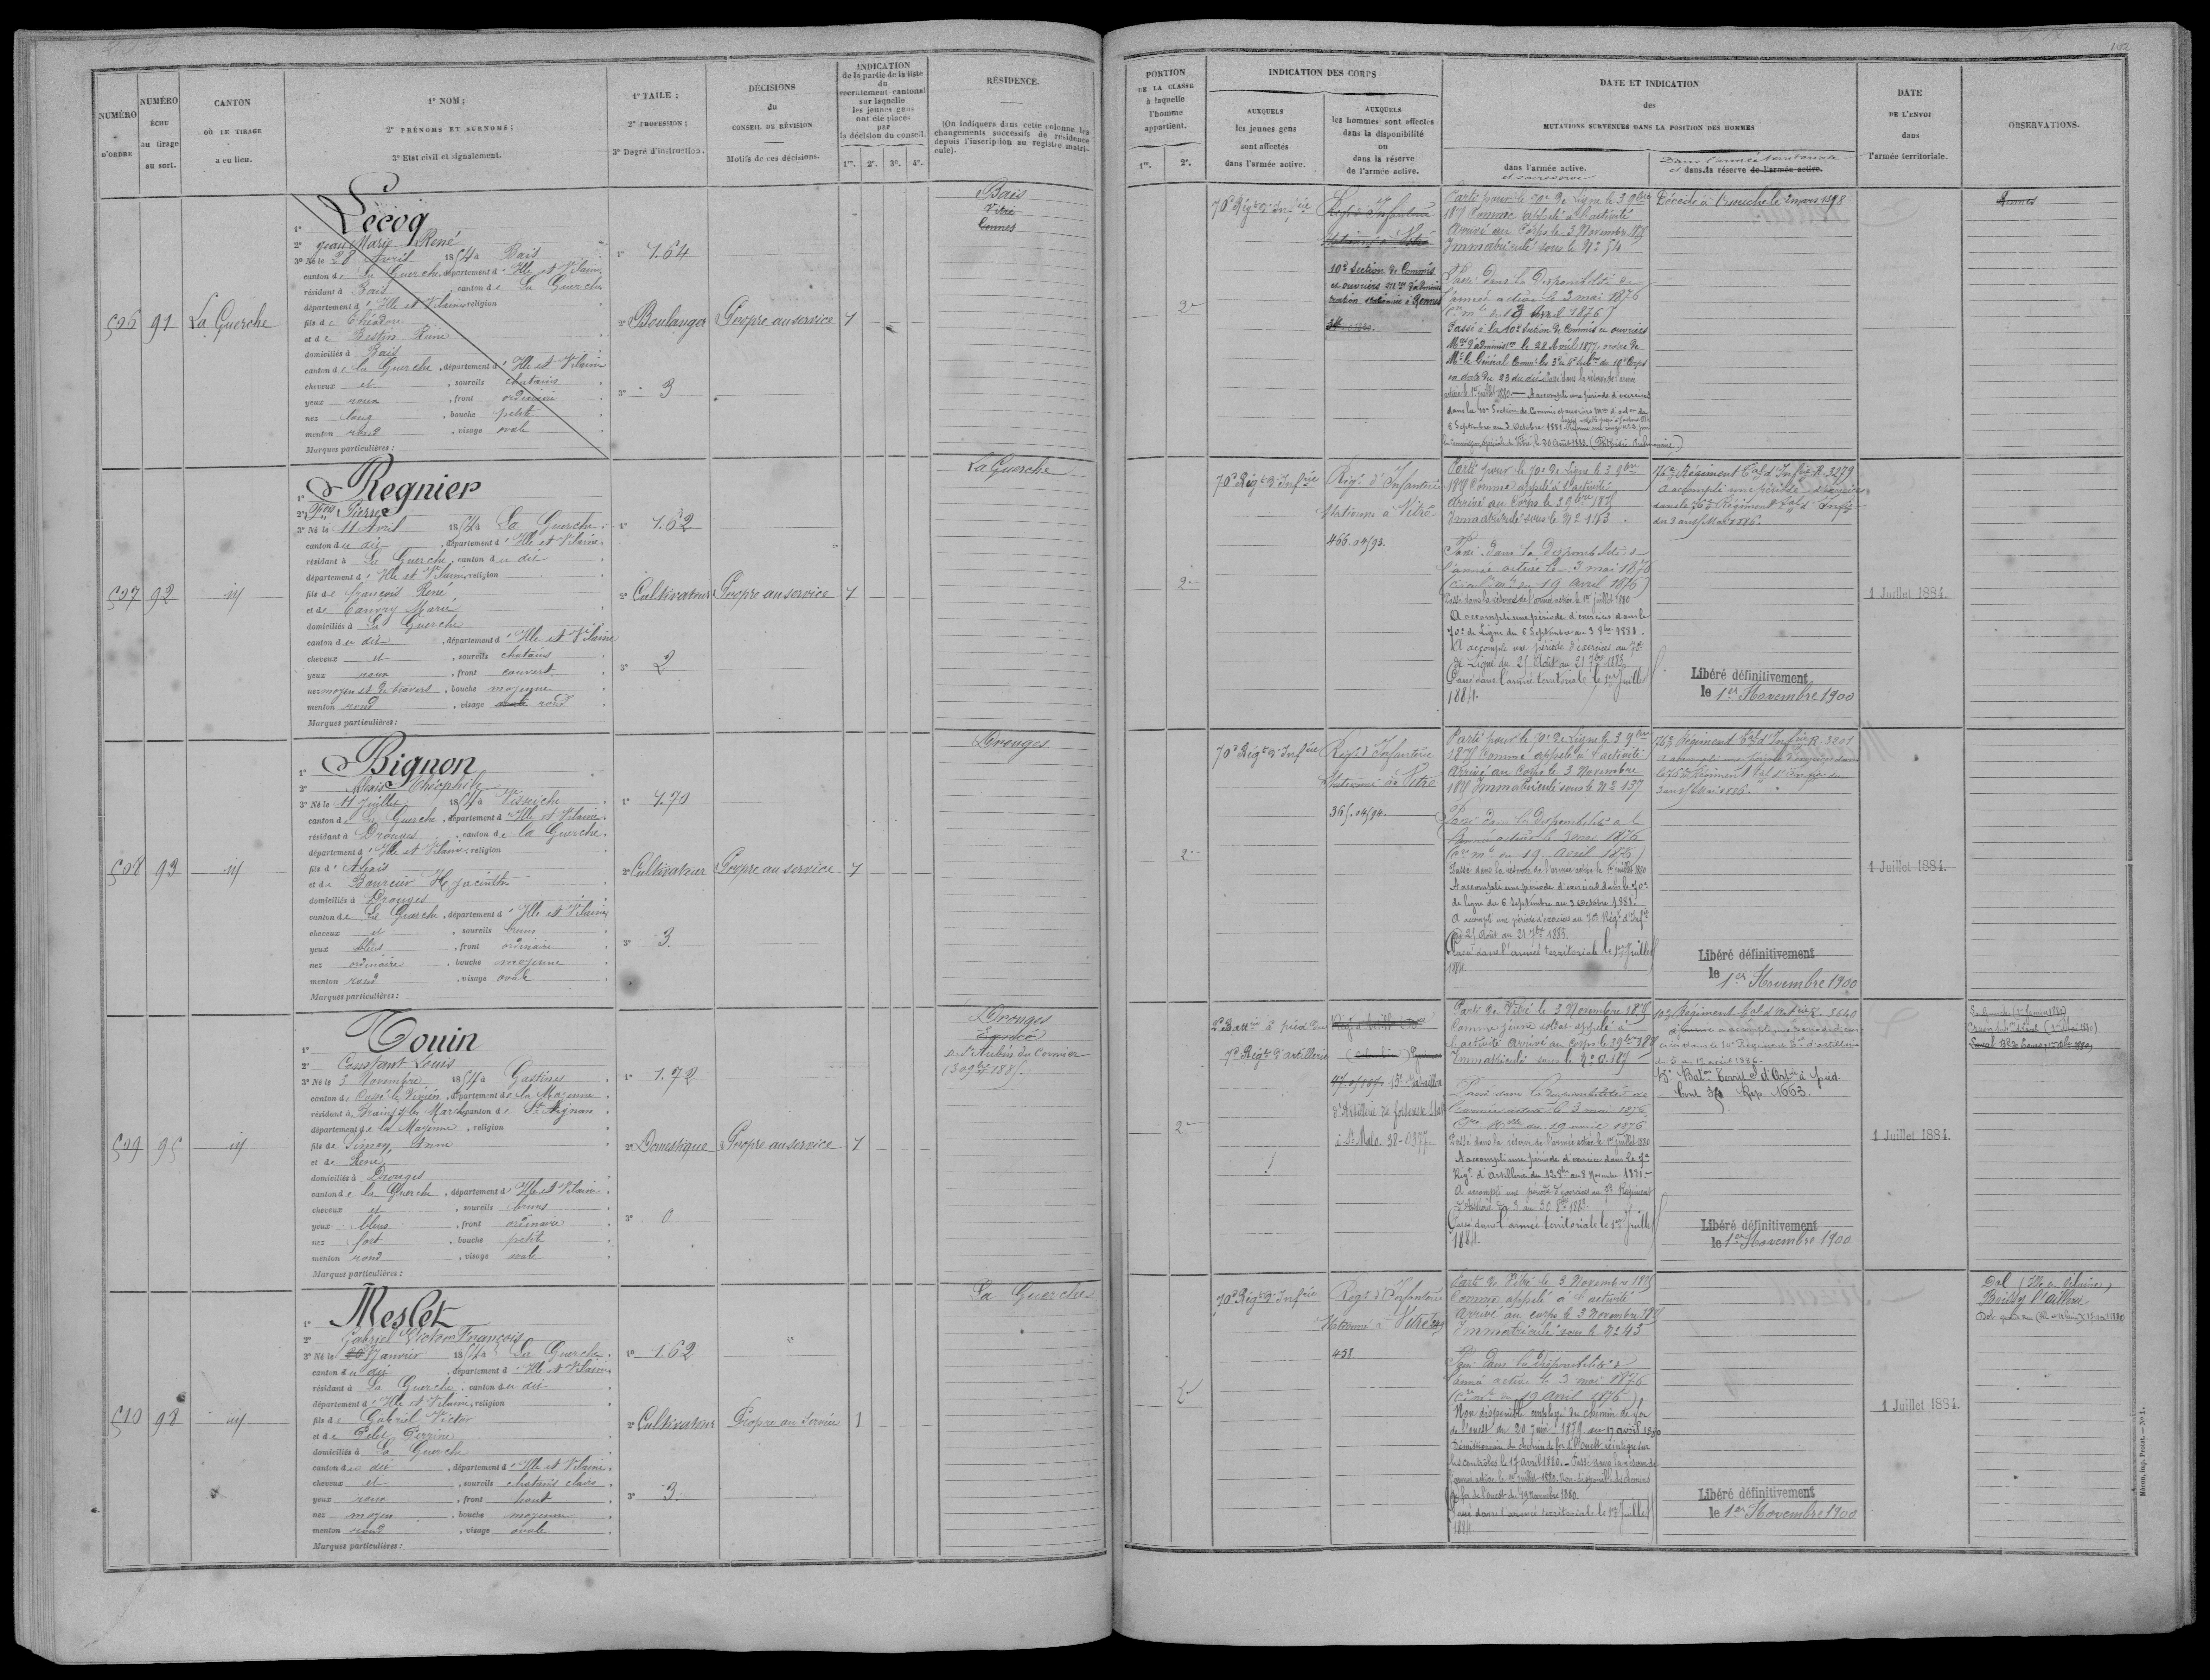 203.
102
NUMÉRO D'ORDRE
NUMÉRO ÉCHU au tirage au sort.
CANTON OÙ LE TIRAGE a eu lieu.
1° NOM ;
2° PRÉNOMS ET SURNOMS ;
3° Etat civil et signalement.
1° TAILE ;
2° PROFESSION ;
3° Degré d'instruction.
DÉCISIONS
du
CONSEIL DE RÉVISION
Motifs de ces décisions.
INDICATION
de la partie de la liste
du
recrutement cantonal
sur laquelle
les jeunes gens
ont été placés
par
la décision du conseil.
1re. 2e. 3e. 4e.
RÉSIDENCE.
(On indiquera dans cette colonne les
changements successifs de résidence
depuis l'inscription au registre matri-
cule).
PORTION
DE LA CLASSE
à laquelle
l'homme
appartient.
1re. 2e.
INDICATION DES CORPS
AUXQUELS
les jeunes gens
sont affectés
dans l'armée active.
AUXQUELS
les hommes sont affectés
dans la disponibilité
ou
dans la réserve
de l'armée active.
DATE ET INDICATION
des
MUTATIONS SURVENUES DANS LA POSITION DES HOMMES
dans l'armée active.
et sa réserve
Dans l'armée territoriale
et dans la réserve de l'armée active.
DATE
DE L'ENVOI
dans
l'armée territoriale.
OBSERVATIONS.
506 91 La Guerche
1° Lecoq
2° Jean Marie René
3° Né le 28 Avril 1854 à Bais
canton de La Guerche, département d'Ille et Vilaine
résidant à Bais, canton de La Guerche
département d'Ille et Vilaine, religion
fils de Théodore
et de Bestin Reine
domiciliés à Bais
canton de la Guerche, département d'Ille et Vilaine
cheveux et, sourcils chatains
yeux roux, front ordinaire
nez long, bouche petite
menton rond, visage ovale
Marques particulières :
1° 1.64
2° Boulanger
3° 3
Propre au service
1
Bais
Vitré
Rennes
2e
70e Régt d'Infrie
Régt d'Infanterie
stationné à Vitré
10e Section de Commis
et ouvriers mres d'adminis
tration stationnée à Rennes
Parti pour le 70e de Ligne le 3 9bre
1875 comme appelé à l'activité
Arrivé au Corps le 3 Novembre 1875
Immatriculé sous le N° 54
Passé dans la Disponibilité de
l'armée active le 3 mai 1876
Passé à la 10e Section de Commis et ouvriers
le 28 Avril 1877, ordre de
Mr le Général
active le 1er juillet 1880. — A accompli une période d'exercices
dans la 10e Section de Commis et ouvriers
6 Septembre au 3 Octobre 1881
Vitré le 20 Août 1883.
Décédé à le 2 mars 1898
Rennes
507 92 id
1° Regnier
2° Fois Pierre
3° Né le 11 Avril 1854 à La Guerche
canton du dit, département d'Ille et Vilaine
résidant à La Guerche, canton du dit
département d'Ille et Vilaine, religion
fils de françois René
et de Canvry Marie
domiciliés à La Guerche
canton du dit, département d'Ille et Vilaine
cheveux et, sourcils chatains
yeux roux, front couvert
nez moyen et de travers, bouche moyenne
menton rond, visage ovale rond
Marques particulières :
1° 1.62
2° Cultivateur
3° 2
Propre au service
1
La Guerche
2e
70e Régt d'Infrie
Régt d'Infanterie
Stationné à Vitré
466. 04/93.
Parti pour le 70e de Ligne le 3 9bre
1875 Comme appelé à l'activité
Arrivé au Corps le 3 9bre 1875
Immatriculé sous le N° 143.
Passé dans la Disponibilité de
l'armée active le 3 mai 1876
(Circul. mlle du 19 Avril 1876)
Passé dans la réserve de l'armée active le 1er juillet 1880
A accompli une période d'exercices dans le
70e de Ligne du 6 Septembre au 3 8bre 1881.
A accompli une période d'exercices au 70e
de Ligne du 25 Août au 21 7bre 1883
Passé dans l'armée territoriale le 1er Juillet
1884.
76e Régiment Tal d'Infrie R. 3279
A accompli une période d'exercices
dans le 76e Régiment Tal d'Infrie
du 3 au 15 Mai 1886.
Libéré définitivement
le 1er Novembre 1900
1 Juillet 1884.
508 93 id
1° Bignon
2° Alexis Théophile
3° Né le 11 Juillet 1854 à Visseiche
canton de La Guerche, département d'Ille et Vilaine
résidant à Drouges, canton de la Guerche
département d'Ille et Vilaine, religion
fils d' Alexis
et de Bourcier Hyacinthe
domiciliés à Drouges
canton de La Guerche, département d'Ille et Vilaine
cheveux et, sourcils bruns
yeux bleus, front ordinaire
nez ordinaire, bouche moyenne
menton rond, visage ovale
Marques particulières :
1° 1.70
2° Cultivateur
3° 3.
Propre au service
1
Drouges
2e
70e Régt d'Infrie
Régt d'Infanterie
Stationné à Vitré
365. 04/94.
Parti pour le 70e de Ligne le 3 9bre
1875 Comme appelé à l'activité
Arrivé au Corps le 3 Novembre
1875 Immatriculé sous le N° 137
Passé dans la disponibilité de l
armée active le 3 mai 1876
(Cre mlle du 19 Avril 1876)
Passé dans la réserve de l'armée active le 1er juillet 1880
A accompli une période d'exercices dans le 70e
de ligne du 6 Septembre au 3 Octobre 1881.
A accompli une période d'exercices au 70e Régt d'Infie
du 25 Août au 21 7bre 1883
Passé dans l'armée territoriale le 1er Juillet
1884.
76e Régiment Tal d'Infrie R. 3201
A accompli une période d'exercices dans
le 76e Régiment Tal d'Infrie du
3 au 15 Mai 1886.
Libéré définitivement
le 1er Novembre 1900
1 Juillet 1884.
509 95 id
1° Touin
2° Constant Louis
3° Né le 3 Novembre 1854 à Gastines
canton de Cossé le Vivien, département de la Mayenne
résidant à, canton de St Aignan
département de la Mayenne, religion
fils de Simon, Anne
et de René
domiciliés à Drouges
canton de la Guerche, département d'Ille et Vilaine
cheveux et, sourcils bruns
yeux bleus, front ordinaire
nez fort, bouche petite
menton rond, visage ovale
Marques particulières :
1° 1.72
2° Domestique
3° 0
Propre au service
1
Drouges
D. St Aubin du Cormier
(30 9bre 1885.
2e
2e Battrie à pied du
7e Régt d'artillerie
15e Bataillon
d'Artillerie de forteresse
à St Malo. 38-0377.
Parti de Vitré le 3 Novembre 1875
Comme jeune soldat appelé à
l'activité Arrivé au Corps le
Immatriculé sous le N°
Passé dans la disponibilité de
l'armée active le 3 mai 1876
Cre Mlle du 19 avril 1876
Passé dans la réserve de l'armée active le 1er juillet 1880
A accompli une période d'exercices dans le 7e
Régt d'Artillerie du 12 8bre au 8 Novembre 1881.
A accompli une période d'exercices au 7e Régiment
d'Artillerie du 3 au 30 8bre 1883.
Passé dans l'armée territoriale le 1er Juillet
1884.
10e Régiment Tal d'Artrie R. 3640
a accompli une période d'exer
cices dans le 10e Régiment Tal d'artillerie
avril 1886.
Baton Territal d'Artrie à pied
Rép. 1663.
Libéré définitivement
le 1er Novembre 1900
1 Juillet 1884.
510 98 id
1° Meslet
2° Gabriel Victor François
3° Né le Janvier 1854 à La Guerche
canton du dit, département d'Ille et Vilaine
résidant à La Guerche, canton du dit
département d'Ille et Vilaine, religion
fils de Gabriel Victor
et de Pelet Perrine
domiciliés à La Guerche
canton du dit, département d'Ille et Vilaine
cheveux et, sourcils chatains clairs
yeux roux, front haut
nez moyen, bouche moyenne
menton rond, visage ovale
Marques particulières :
1° 1.62
2° Cultivateur
3° 3.
Propre au Service
1
La Guerche
2e
70e Régt d'Infrie
Régt d'Infanterie
Stationné à Vitré
458
Parti de Vitré le 3 Novembre 1875
Comme appelé à l'activité
Arrivé au corps le 3 Novembre 1875
Immatriculé sous le N° 43
Passé dans la disponibilité de
l'armée active le 3 mai 1876
(Cre mlle du 19 Avril 1876)
Non disponible employé du chemin de fer
de l'ouest du 20 Juin 1879 au 17 avril 1880
Démissionnaire du chemin de fer de l'Ouest réintégré sur
les contrôles le 17 avril 1880. — Passé dans la réserve de
l'armée active le 1er juillet 1880. Non disponible des chemins
de fer de l'ouest du 19 Novembre 1880.
Passé dans l'armée territoriale le 1er Juillet
1884.
Libéré définitivement
le 1er Novembre 1900
1 Juillet 1884.
Dol (Ille et Vilaine)
Boissy l'aillerie